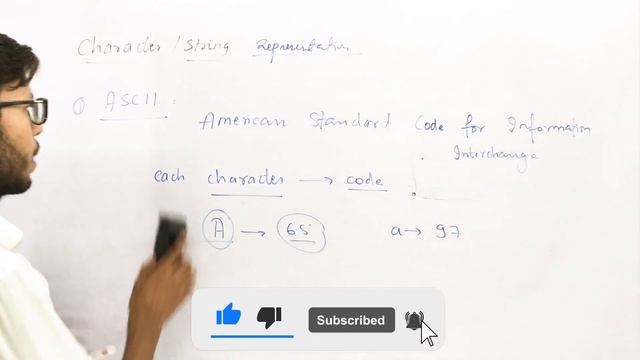 Character / String Representation
① ASCII :
American Standard Code for Information
Interchange
each character → code
A → 65
a → 97
Subscribed